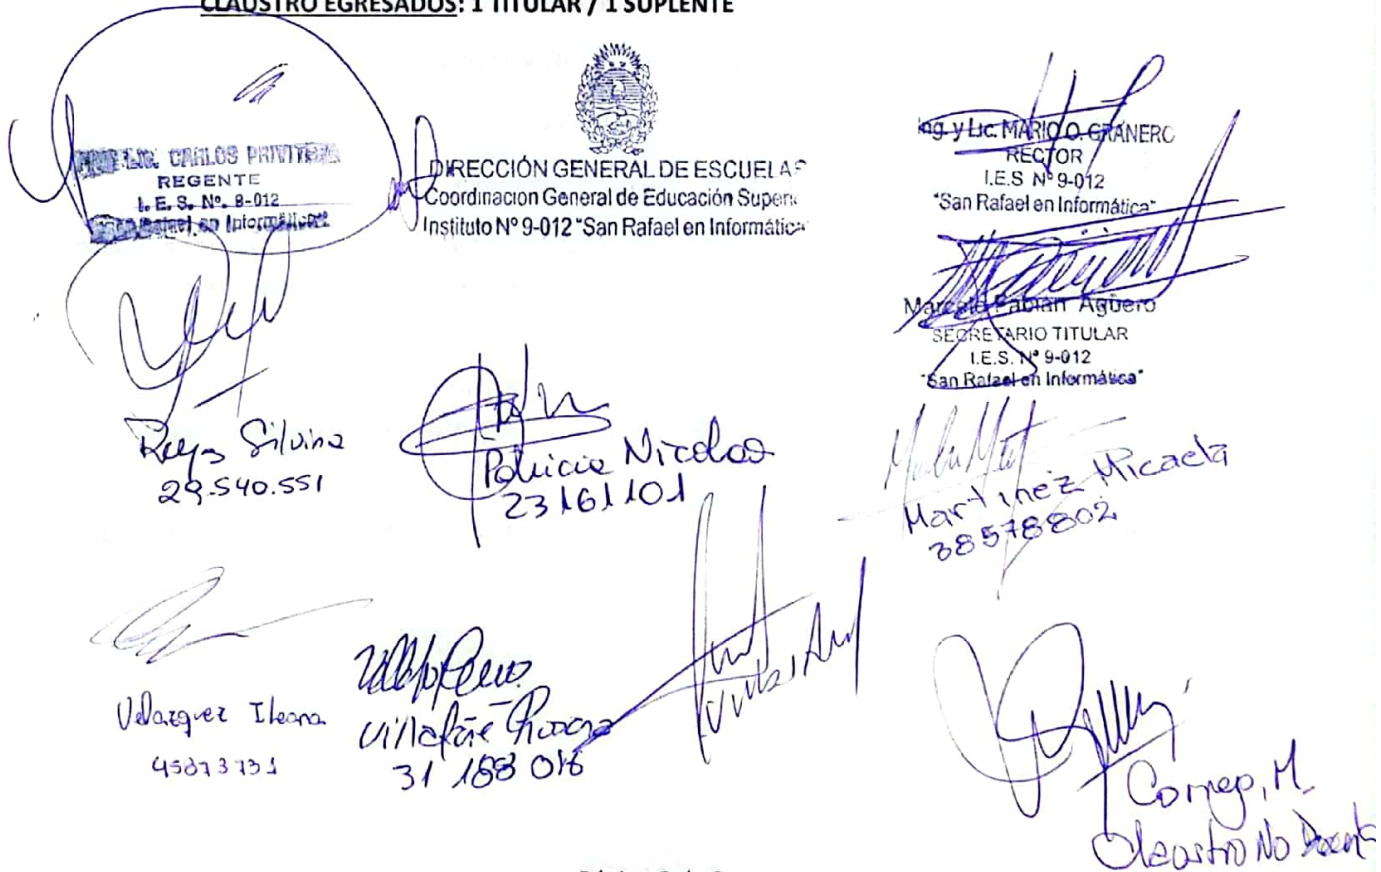 CLAUSTRO EGRESADOS: 1 TITULAR / 1 SUPLENTE
LIC. CARLOS PRIVITERA
REGENTE
I. E. S. Nº. 9-012
"San Rafael en Informática"
DIRECCIÓN GENERAL DE ESCUELAS
Coordinacion General de Educación Superi
Instituto Nº 9-012 "San Rafael en Informática"
Ing. y Lic. MARIO O. GRANERO
RECTOR
I.E.S Nº 9-012
"San Rafael en Informática"
Marcelo Fabián Agüero
SECRETARIO TITULAR
I.E.S. Nº 9-012
"San Rafael en Informática"
Silvina
29.540.551
Nicolas
23161101
Martinez Micaela
38578802
Velazquez Ileana
45873731
Villafañe
31 188 016
Cornejo, M.
Claustro No Docente